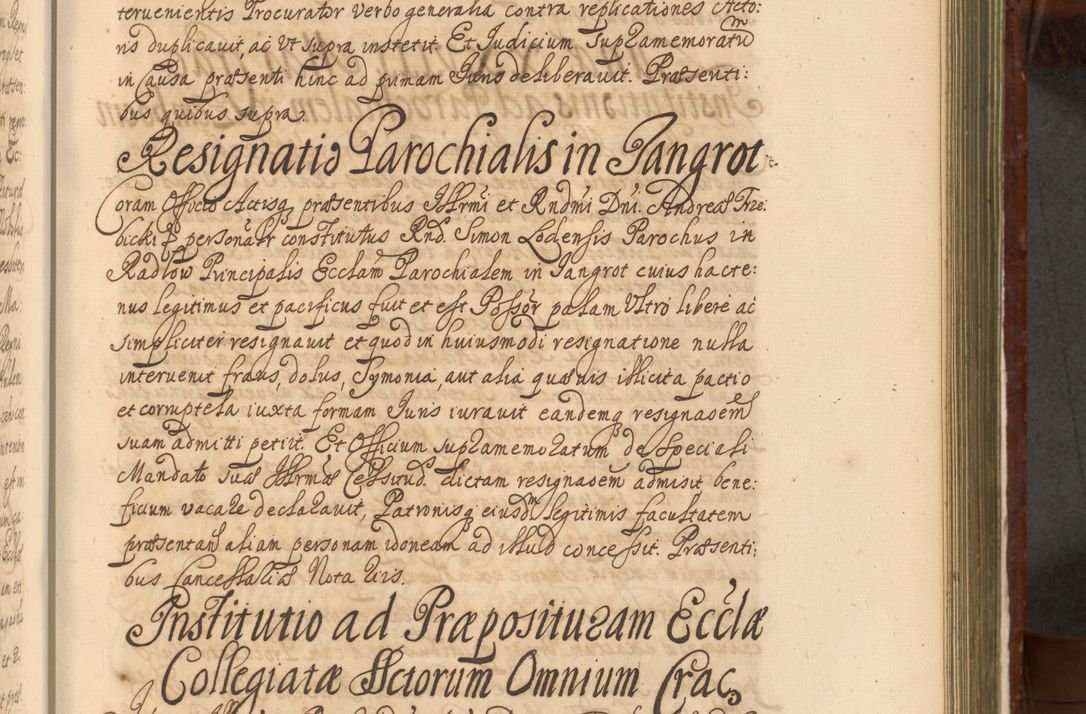 teruenientis Procurator verbo generalia contra replicationes Acto:
ris duplicauit, ac vt supra institit. Et Judicium supramemoratũ
in Causa præsenti hinc ad primam Juris deliberauit. Præsenti:
bus quibus supra.
Resignatio Parochialis in Jangrot
Coram Officio Actisq præsentibus Illrmi et Rndmi Dni. Andreæ Trze:
bicki p personalr constitutus Rnd. Simon Lodensis Parochus in
Radłow Principalis Ecclam Parochialem in Jangrot cuius hacte:
nus legitimus et pacificus fuit et est Possor palam vltro libere ac
simpliciter resignauit et quod in huiusmodi resignatione nulla
interuenit fraus, dolus, Symonia, aut alia quæuis illicita pactio
et corruptela iuxta formam Juris iurauit eandemq resignaoem
suam admitti petiit. Et Officium supramemoratum de speciali
Mandato suæ Illrmæ Celsitud. dictam resignaoem admisit, bene:
ficium vacare declarauit, Patronisq eiusdm legitimis facultatem
præsentan aliam personam idoneam ad illud concessit. Præsenti:
bus Cancellariæ Notariis.
Institutio ad Præposituram Ecclæ
Collegiatæ SSctorum Omnium Crac.